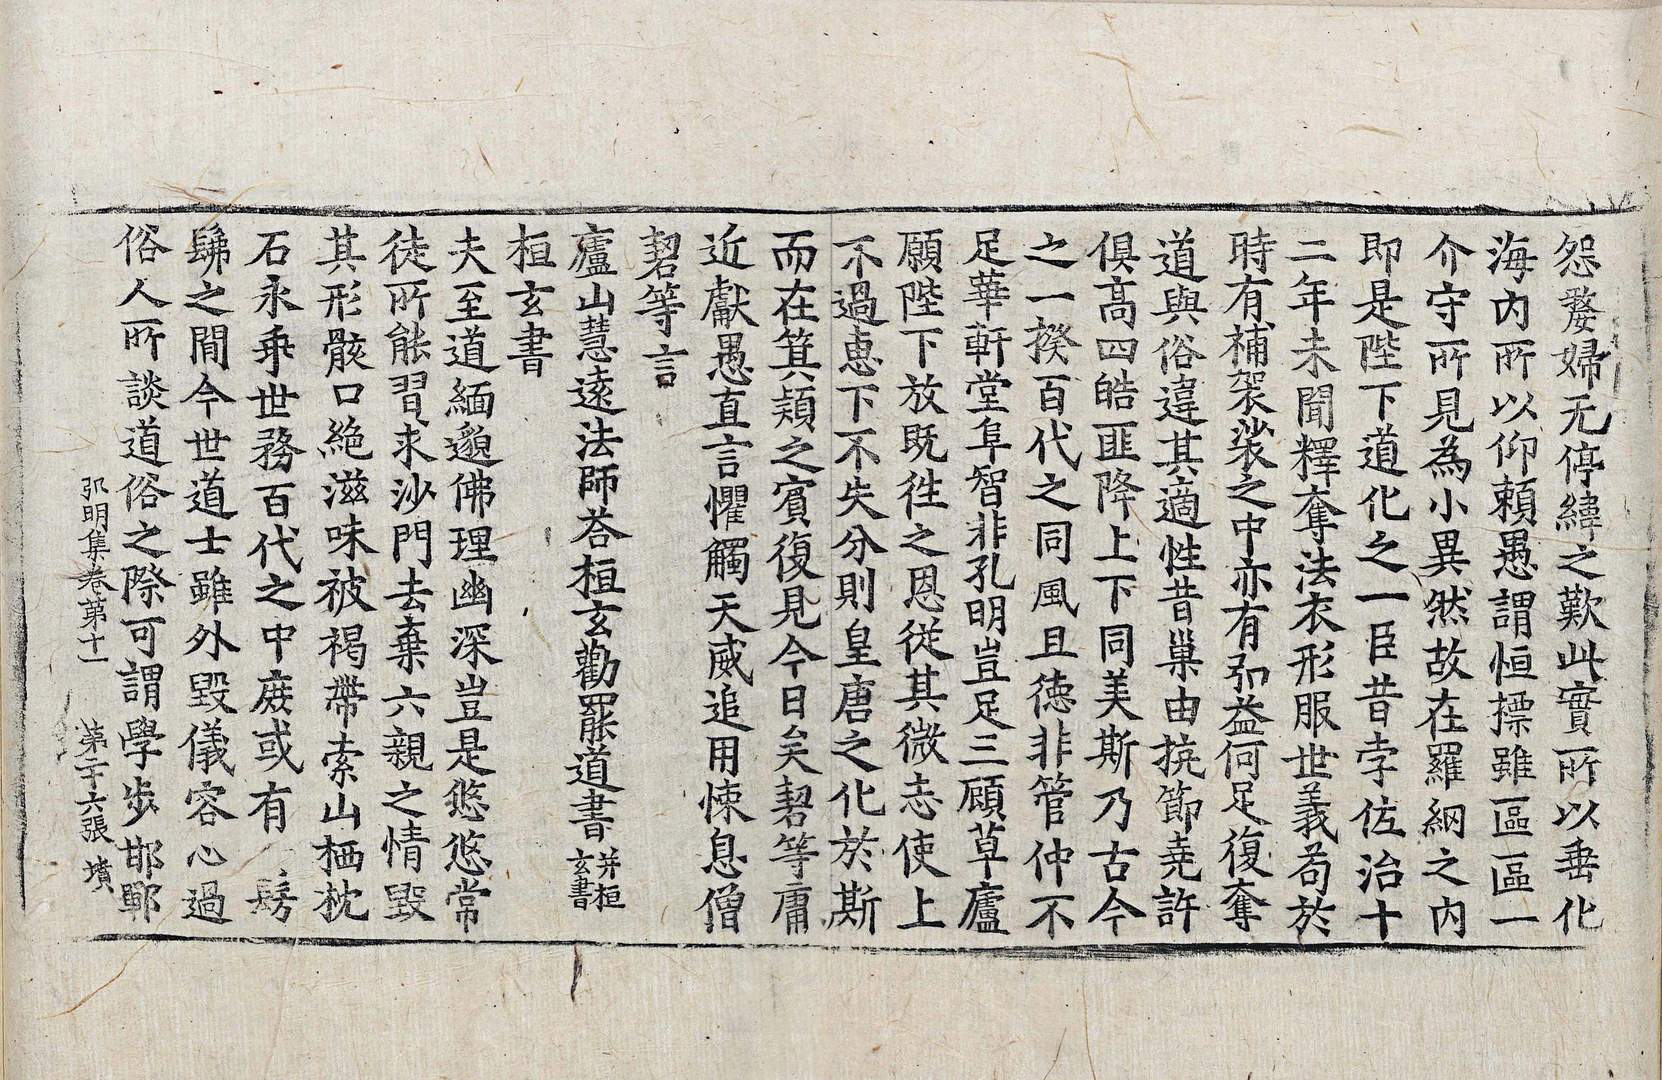 怨嫠婦无停緯之歎此實所以垂化
海内所以仰賴愚謂恒標雖區區一
介守所見為小異然故在羅網之内
即是陛下道化之一臣昔孛佐治十
二年未聞釋奪法衣形服世義苟於
時有補袈裟之中亦有弘益何足復奪
道與俗違其適性昔巢由抗節堯許
俱高四皓匪降上下同美斯乃古今
之一揆百代之同風且德非管仲不
足華軒堂阜智非孔明豈足三顧草廬
願陛下放既往之恩従其微志使上
不過恵下不失分則皇唐之化於斯
而在箕潁之賓復見今日矣䂮等庸
近獻愚直言懼觸天威追用悚息僧
䂮等言
廬山慧遠法師荅桓玄勸罷道書并桓玄書
桓玄書
夫至道緬邈佛理幽深豈是悠悠常
徒所能習求沙門去棄六親之情毀
其形骸口絶滋味被褐帶索山栖枕
石永乖世務百代之中庶或有髣
髴之間今世道士雖外毀儀容心過
俗人所談道俗之際可謂學步邯鄲
弘明集卷第十一 第二十六張 墳